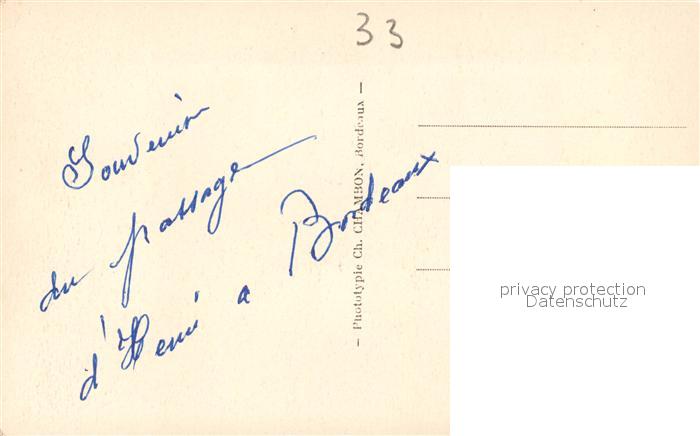 33
Souvenir
du passage
d'Henri a Bordeaux
— Phototypie Ch. CHAMBON, Bordeaux —
privacy protection
Datenschutz